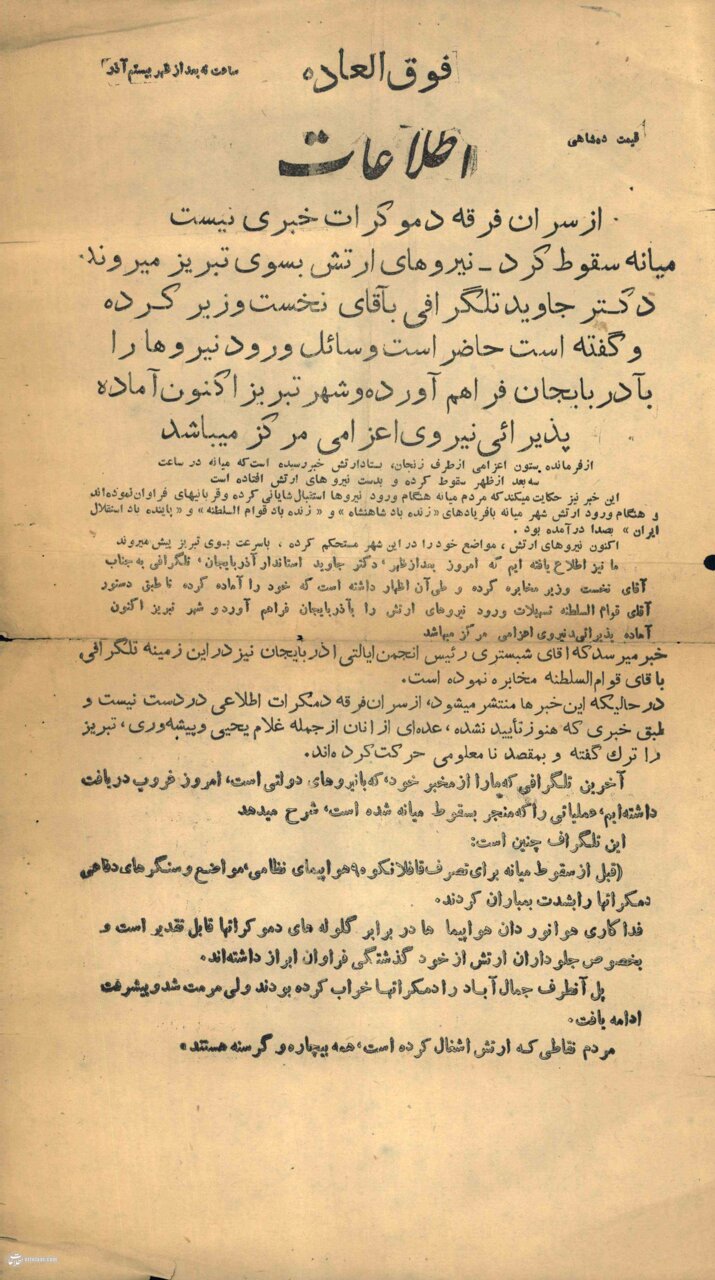 فوق العاده
ساعت نه بعد از ظهر بیستم آذر
قیمت ده شاهی
اطلاعات
از سران فرقه دموکرات خبری نیست
میانه سقوط کرد ـ نیروهای ارتش بسوی تبریز میروند.
دکتر جاوید تلگرافی بآقای نخست وزیر کرده
و گفته است حاضر است وسائل ورود نیروها را
بآذربایجان فراهم آورده و شهر تبریز اکنون آماده
پذیرائی نیروی اعزامی مرکز میباشد
از فرمانده ستون اعزامی از طرف زنجان، بستاد ارتش خبر رسیده است که میانه در ساعت
سه بعد از ظهر سقوط کرده و بدست نیروهای ارتش افتاده است
این خبر نیز حکایت میکند که مردم میانه هنگام ورود نیروها استقبال شایانی کرده و قربانیهای فراوان نموده‌اند
و هنگام ورود ارتش شهر میانه با فریادهای «زنده باد شاهنشاه» و «زنده باد قوام السلطنه» و «پاینده باد استقلال
ایران» بصدا درآمده بود.
اکنون نیروهای ارتش، مواضع خود را در این شهر مستحکم کرده، با سرعت بسوی تبریز پیش میروند
ما نیز اطلاع یافته ایم که امروز بعد از ظهر، دکتر جاوید استاندار آذربایجان، تلگرافی به جناب
آقای نخست وزیر مخابره کرده و طی آن اظهار داشته است که خود را آماده کرده تا طبق دستور
آقای قوام السلطنه تسهیلات ورود نیروهای ارتش را بآذربایجان فراهم آورد و شهر تبریز اکنون
آماده پذیرائی نیروی اعزامی مرکز میباشد
خبر میرسد که اقای شبستری رئیس انجمن ایالتی اذربایجان نیز در این زمینه تلگرافی
باقای قوام السلطنه مخابره نموده است.
در حالیکه این خبرها منتشر میشود، از سران فرقه دمکرات اطلاعی در دست نیست و
طبق خبری که هنوز تأیید نشده، عده‌ای از انان از جمله غلام یحیی و پیشه‌وری، تبریز
را ترك گفته و بمقصد نامعلومی حرکت کرده اند.
آخرین تلگرافی که ما را از مخبر خود، که با نیروهای دولتی است، امروز غروب دریافت
داشته ایم، عملیاتی را که منجر بسقوط میانه شده است، شرح میدهد
این تلگراف چنین است:
(قبل از سقوط میانه برای تصرف قافلانکوه ۹ هواپیمای نظامی، مواضع و سنگرهای دفاعی
دمکراتها را بشدت بمباران کردند.
فداکاری هوانوردان هواپیما ها در برابر گلوله های دموکراتها قابل تقدیر است و
بخصوص جلوداران ارتش از خود گذشتگی فراوان ابراز داشته‌اند.
پل آنطرف جمال آباد را دمکراتها خراب کرده بودند ولی مرمت شد و پیشرفت
ادامه یافت.
مردم نقاطی که ارتش اشغال کرده است، همه بیچاره و گرسنه هستند.